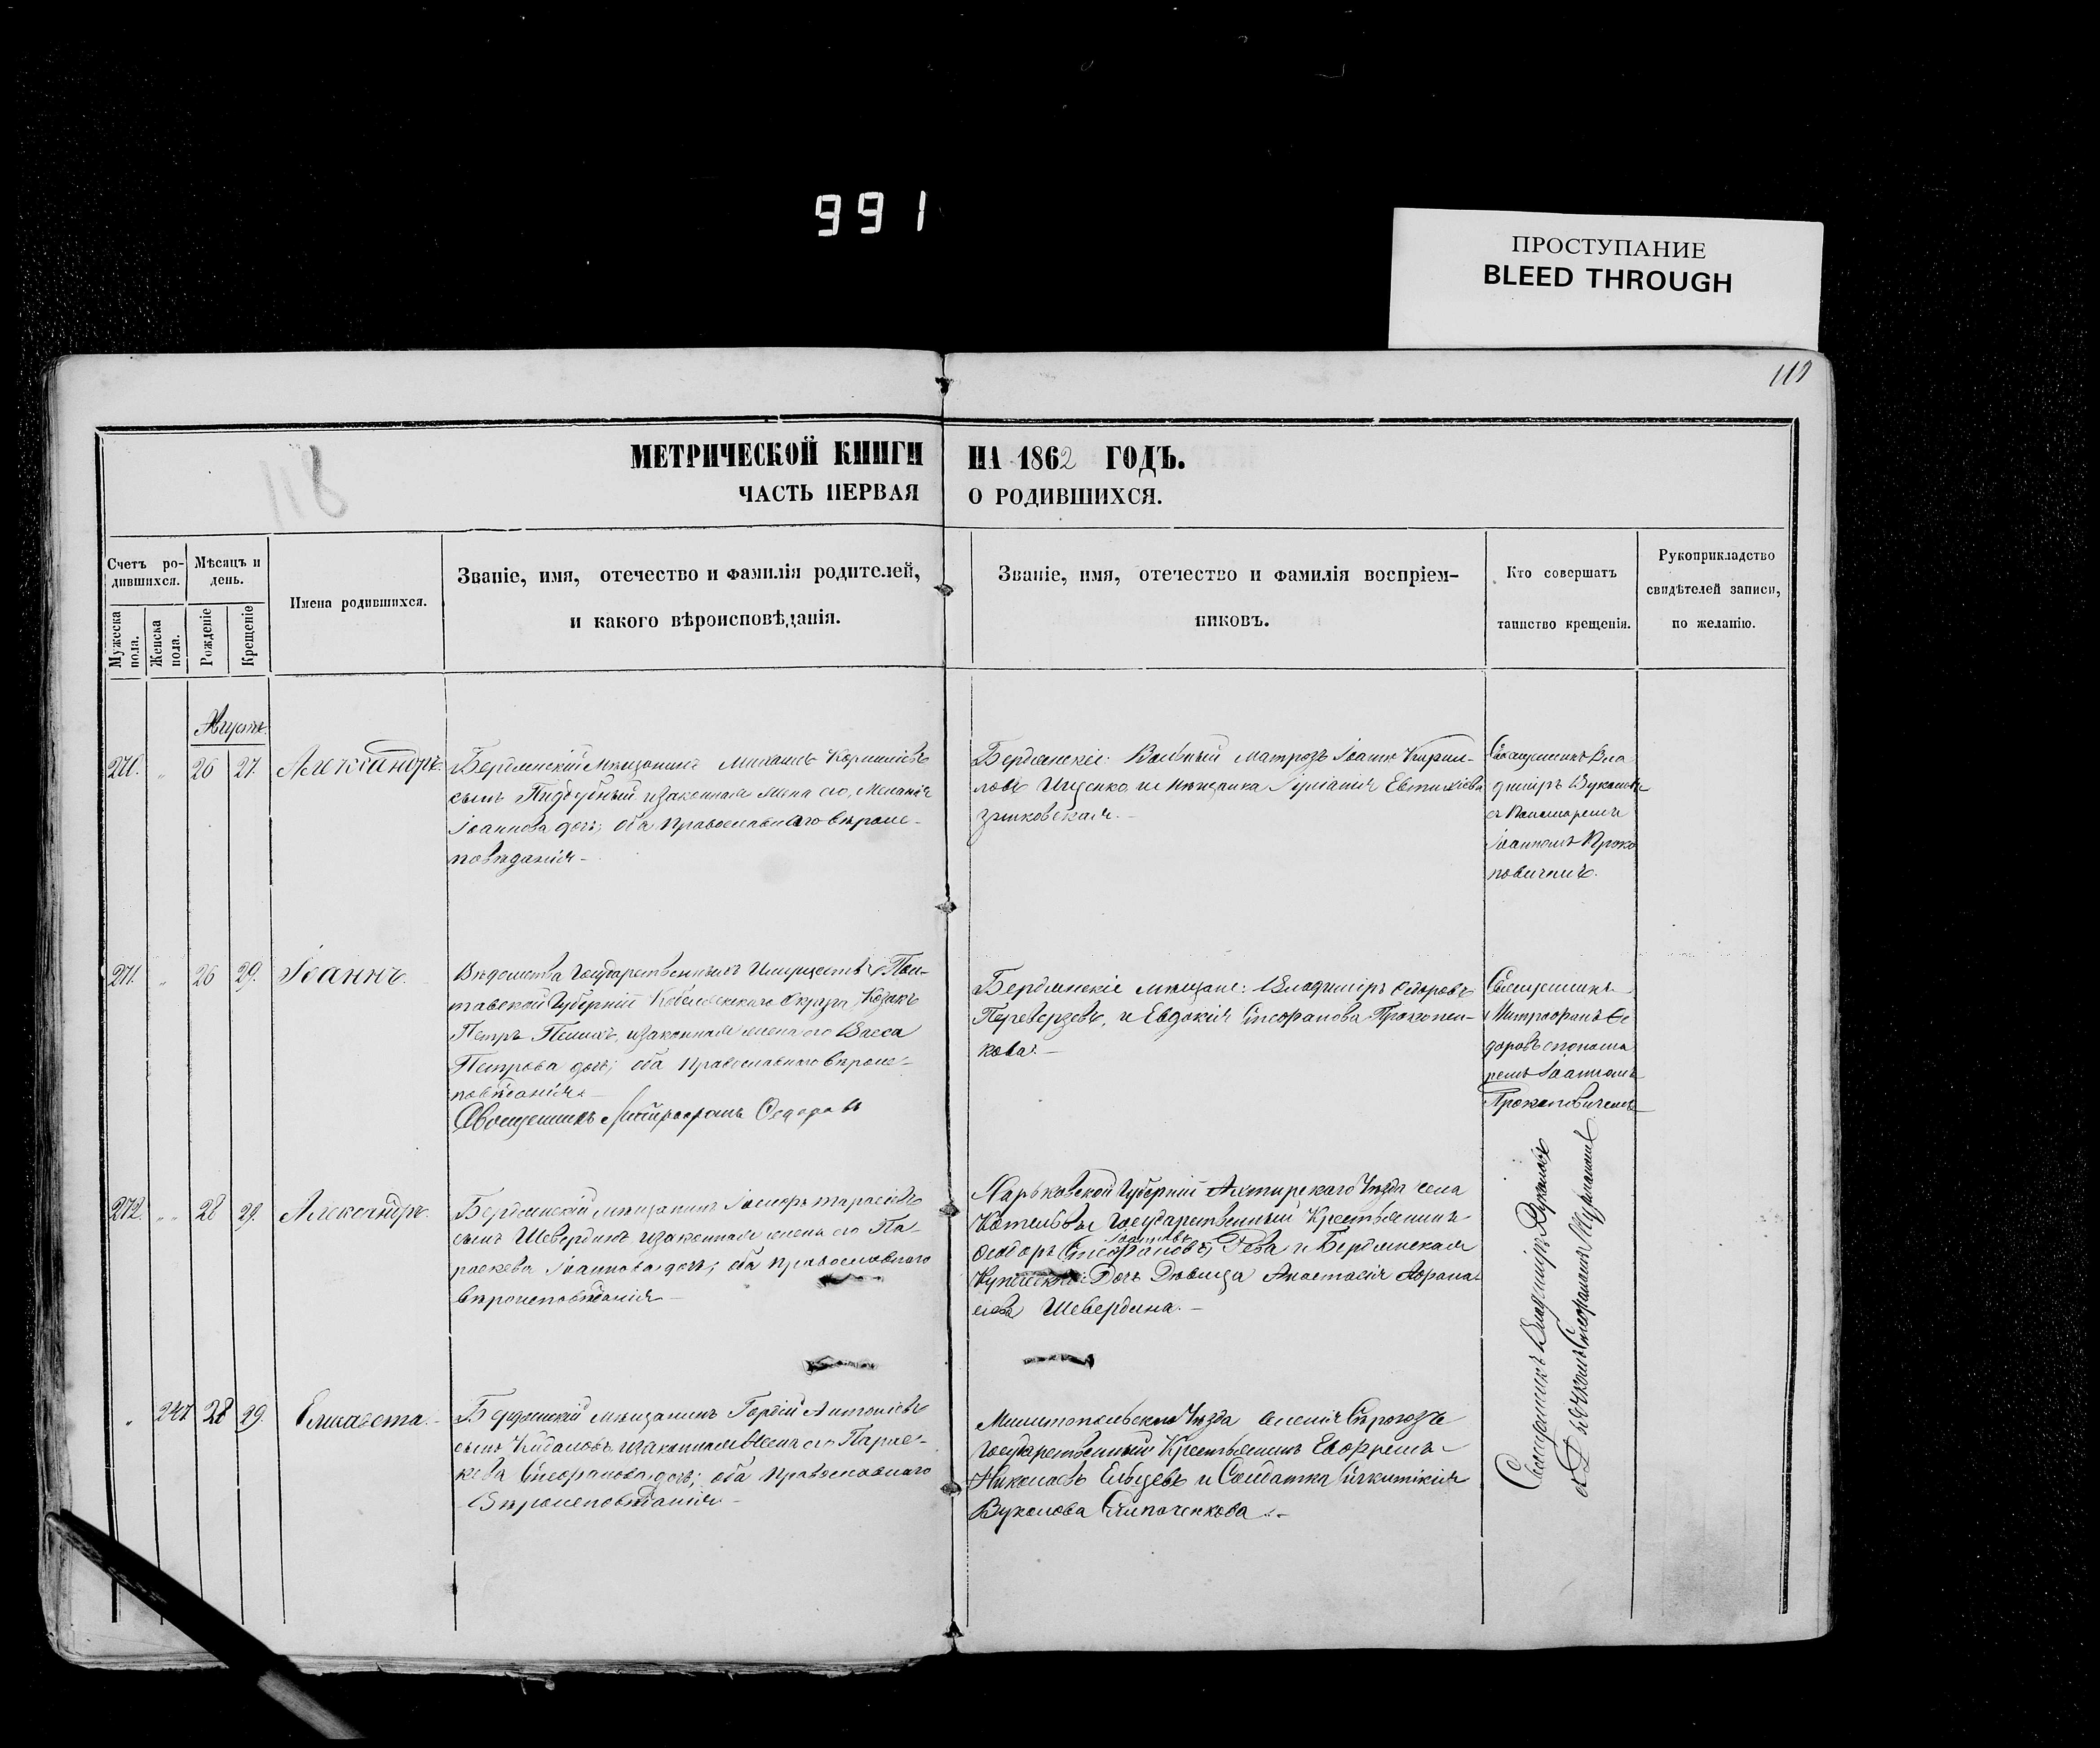 991
ПРОСТУПАНИЕ
BLEED THROUGH
119
118
МЕТРИЧЕСКОЙ КНИГИ НА 1862 ГОДЪ.
ЧАСТЬ ПЕРВАЯ О РОДИВШИХСЯ.
Счетъ ро-
дившихся.
Мужеска пола.
Женска пола.
Мѣсяцъ и
день.
Рожденіе
Крещеніе
Имена родившихся.
Званіе, имя, отечество и фамилія родителей,
и какого вѣроисповѣданія.
Званіе, имя, отечество и фамилія воспріем-
никовъ.
Кто совершатъ
таинство крещенія.
Рукоприкладство
свидѣтелей записи,
по желанію.
Августъ.
270. „ 26 27. Александръ.
Бердянскій мѣщанинъ Михаилъ Корниліевъ
сынъ Пиддубный и законная жена его, Меланія
Іоаннова дочь; оба православнаго вѣроис-
повѣданія
Бердянскіе: Вольный матрозъ Іоаннъ Кирил-
ловъ Ищенко и мѣщанка Евтихіева
Священникъ Вла
диміръ Вукаловъ
съ Пономаремъ
Іоанномъ Проко
повичемъ.
271. „ 26 29. Іоаннъ.
Вѣдомства Государственныхъ Имуществъ Пол-
тавской Губерніи Кобелякскаго Округа, Козакъ
Петръ и законная жена его Васса
Петрова дочь; оба православнаго вѣроис-
повѣданія
Священникъ Митрофанъ Ѳедоровъ
Бердянскіе мѣщане: Владиміръ Ѳедоровъ
Переверзевъ, и Евдокія Стефанова Прокопен-
кова.
Священникъ
Митрофанъ Ѳе
доровъ съ понома
ремъ Іоанномъ
Прокоповичемъ
272. „ 28 29. Александръ.
Бердянскій мѣщанинъ Тарасіевъ
сынъ Шевердинъ и законная жена его Па-
раскева Іоаннова дочь; оба православнаго
вѣроисповѣданія
Харьковской Губерніи Ахтирскаго Уѣзда села
Котельвы Государственный Крестьянинъ
Ѳедоръ Стефановъ Рева и Бердянская
Дочь Дѣвица Анастасія Афана-
сіева Шевердина.
„ 247 28 29 Елисавета.
Бердянскій мѣщанинъ Гордій Антоніевъ
сынъ и законная жена его Парас-
кева Стефанова дочь; оба православнаго
Вѣроисповѣданія
Мелитопольскаго Уѣзда селенія Сирогозъ
Государственный Крестьянинъ Ефремъ
Николаевъ Ельцевъ и Солдатка
Вукалова
Священникъ Владиміръ Вукаловъ
съ Дьячкомъ Стефаномъ